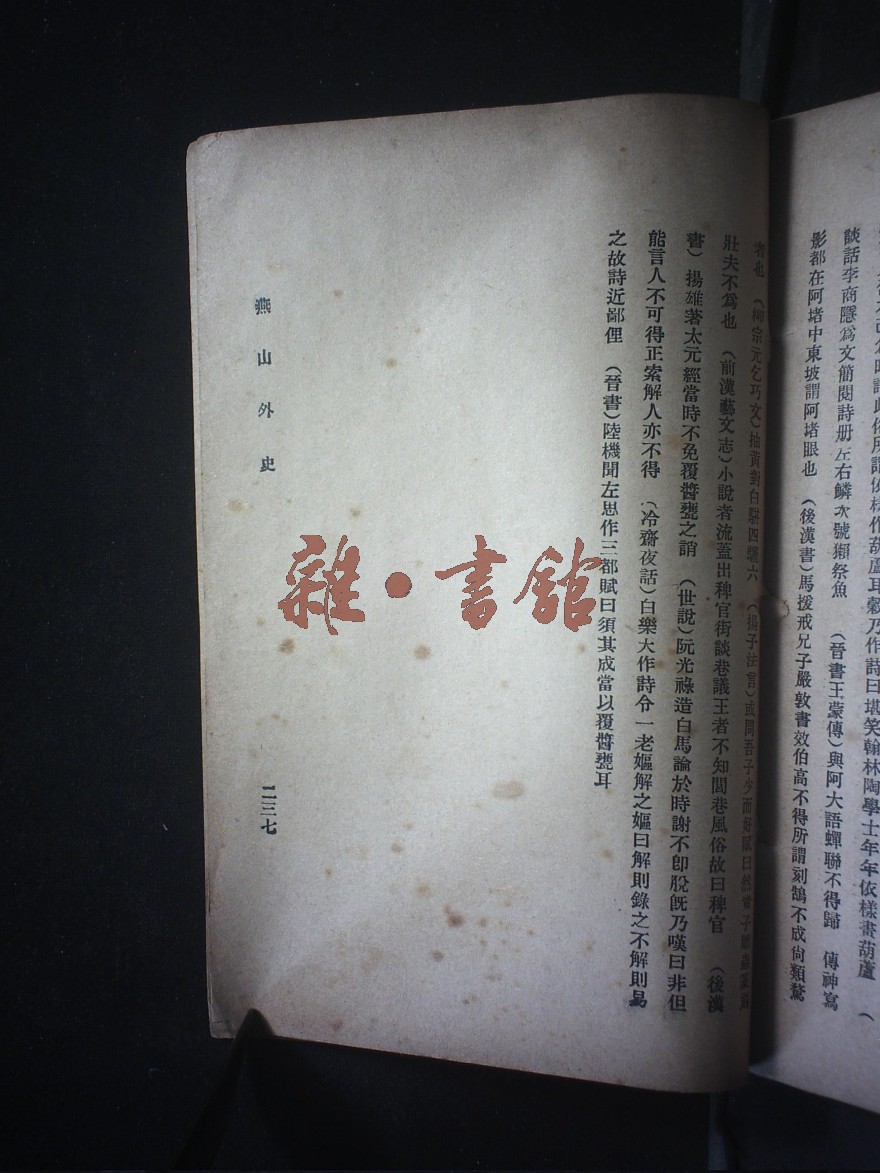 談話李商隱爲文簡閱詩册左右鱗次號獺祭魚　（晉書王蒙傳）與阿大語蟬聯不得歸　傳神寫
影都在阿堵中東坡謂阿堵眼也　（後漢書）馬援戒兄子嚴敦書效伯高不得所謂刻鵠不成尙類鶩
者也　（柳宗元乞巧文）抽黃對白駢四驪六　（揚子法言）或問吾子少而好賦曰然童子雕蟲篆刻
壯夫不爲也　（前漢藝文志）小說者流蓋出稗官街談巷議王者不知閭巷風俗故曰稗官　（後漢
書）揚雄著太元經當時不免覆醬甕之誚　（世說）阮光祿造白馬論於時謝不卽脫旣乃嘆曰非但
能言人不可得正索解人亦不得　（冷齋夜話）白樂大作詩令一老嫗解之嫗曰解則錄之不解則易
之故詩近鄙俚　（晉書）陸機聞左思作三都賦曰須其成當以覆醬甕耳
燕山外史
二三七
雜·書館